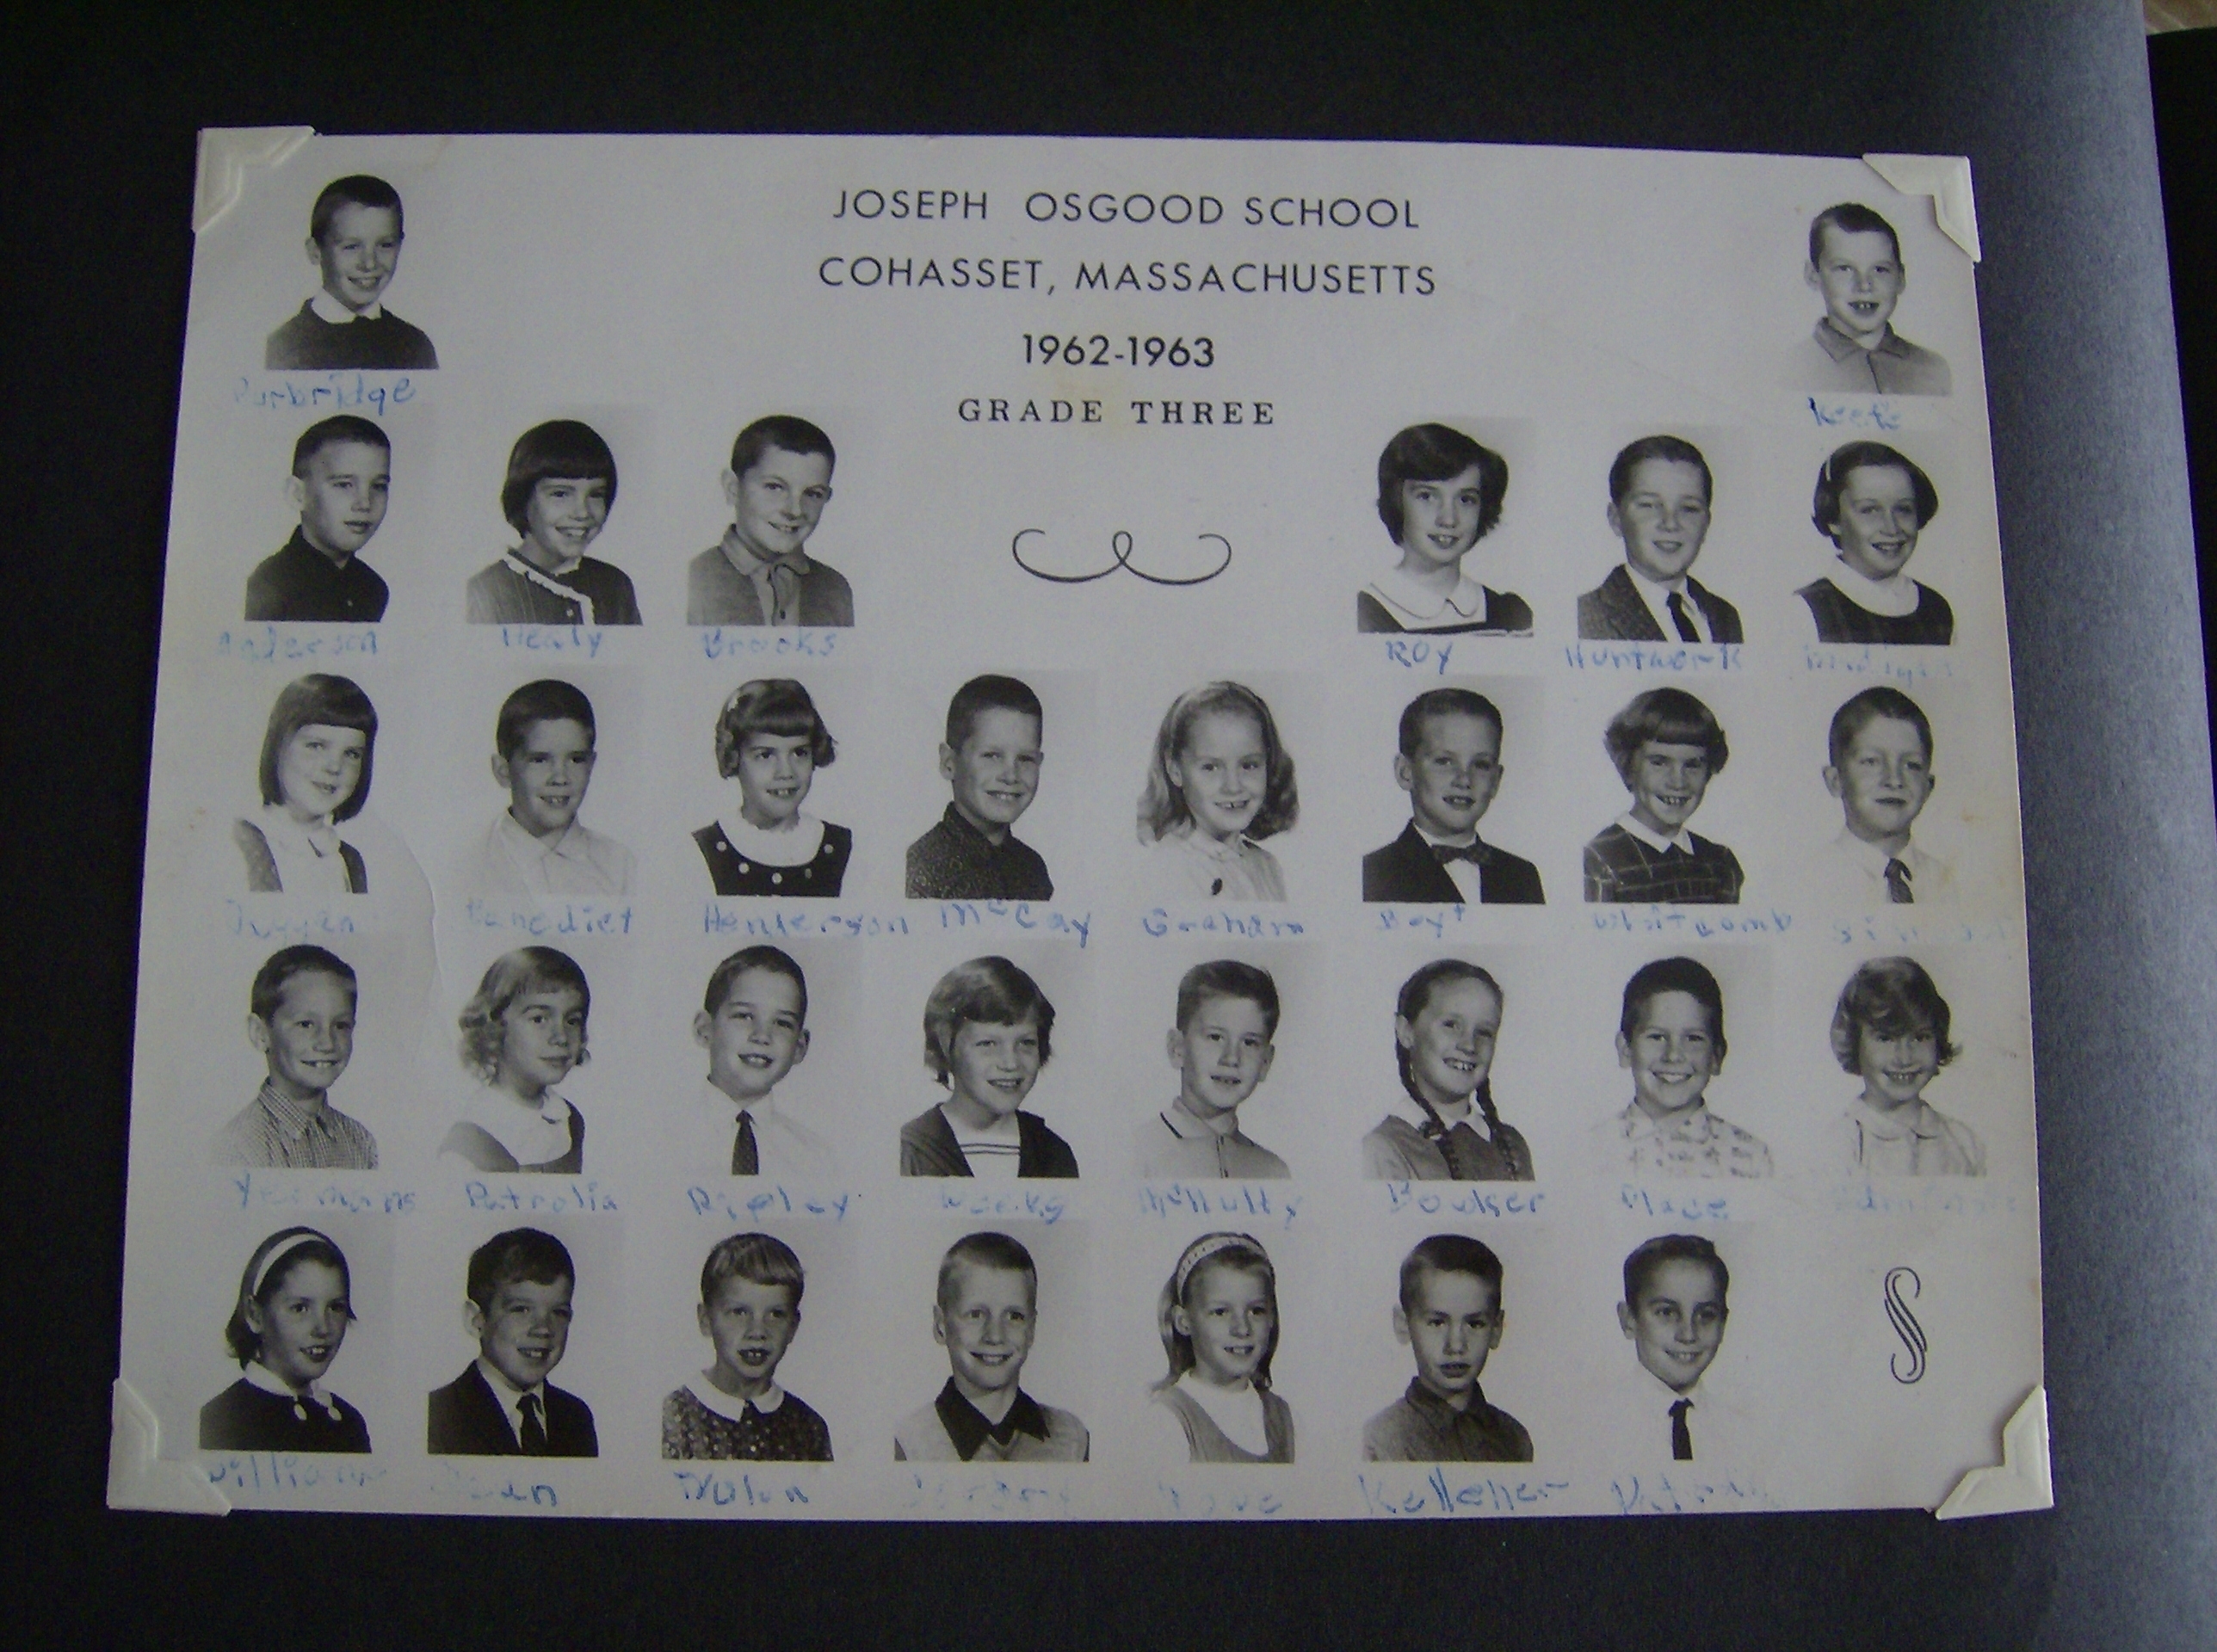 JOSEPH OSGOOD SCHOOL
COHASSET, MASSACHUSETTS
1962-1963
GRADE THREE
Burbridge Keefe
Anderson Healy Brooks Roy Huntwork
Benedict Henderson McCay Graham Boyt Whitcomb
Yeamans Patrolia Ripley Weeks McNulty Bowker Place
William Nolan Kelleher